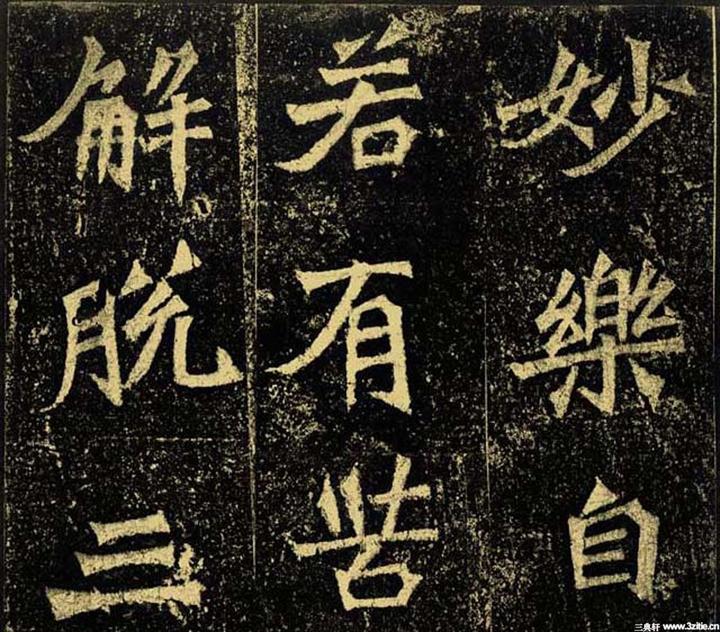 妙樂自
若有苦
解脫三
三典轩 www.3zitie.cn